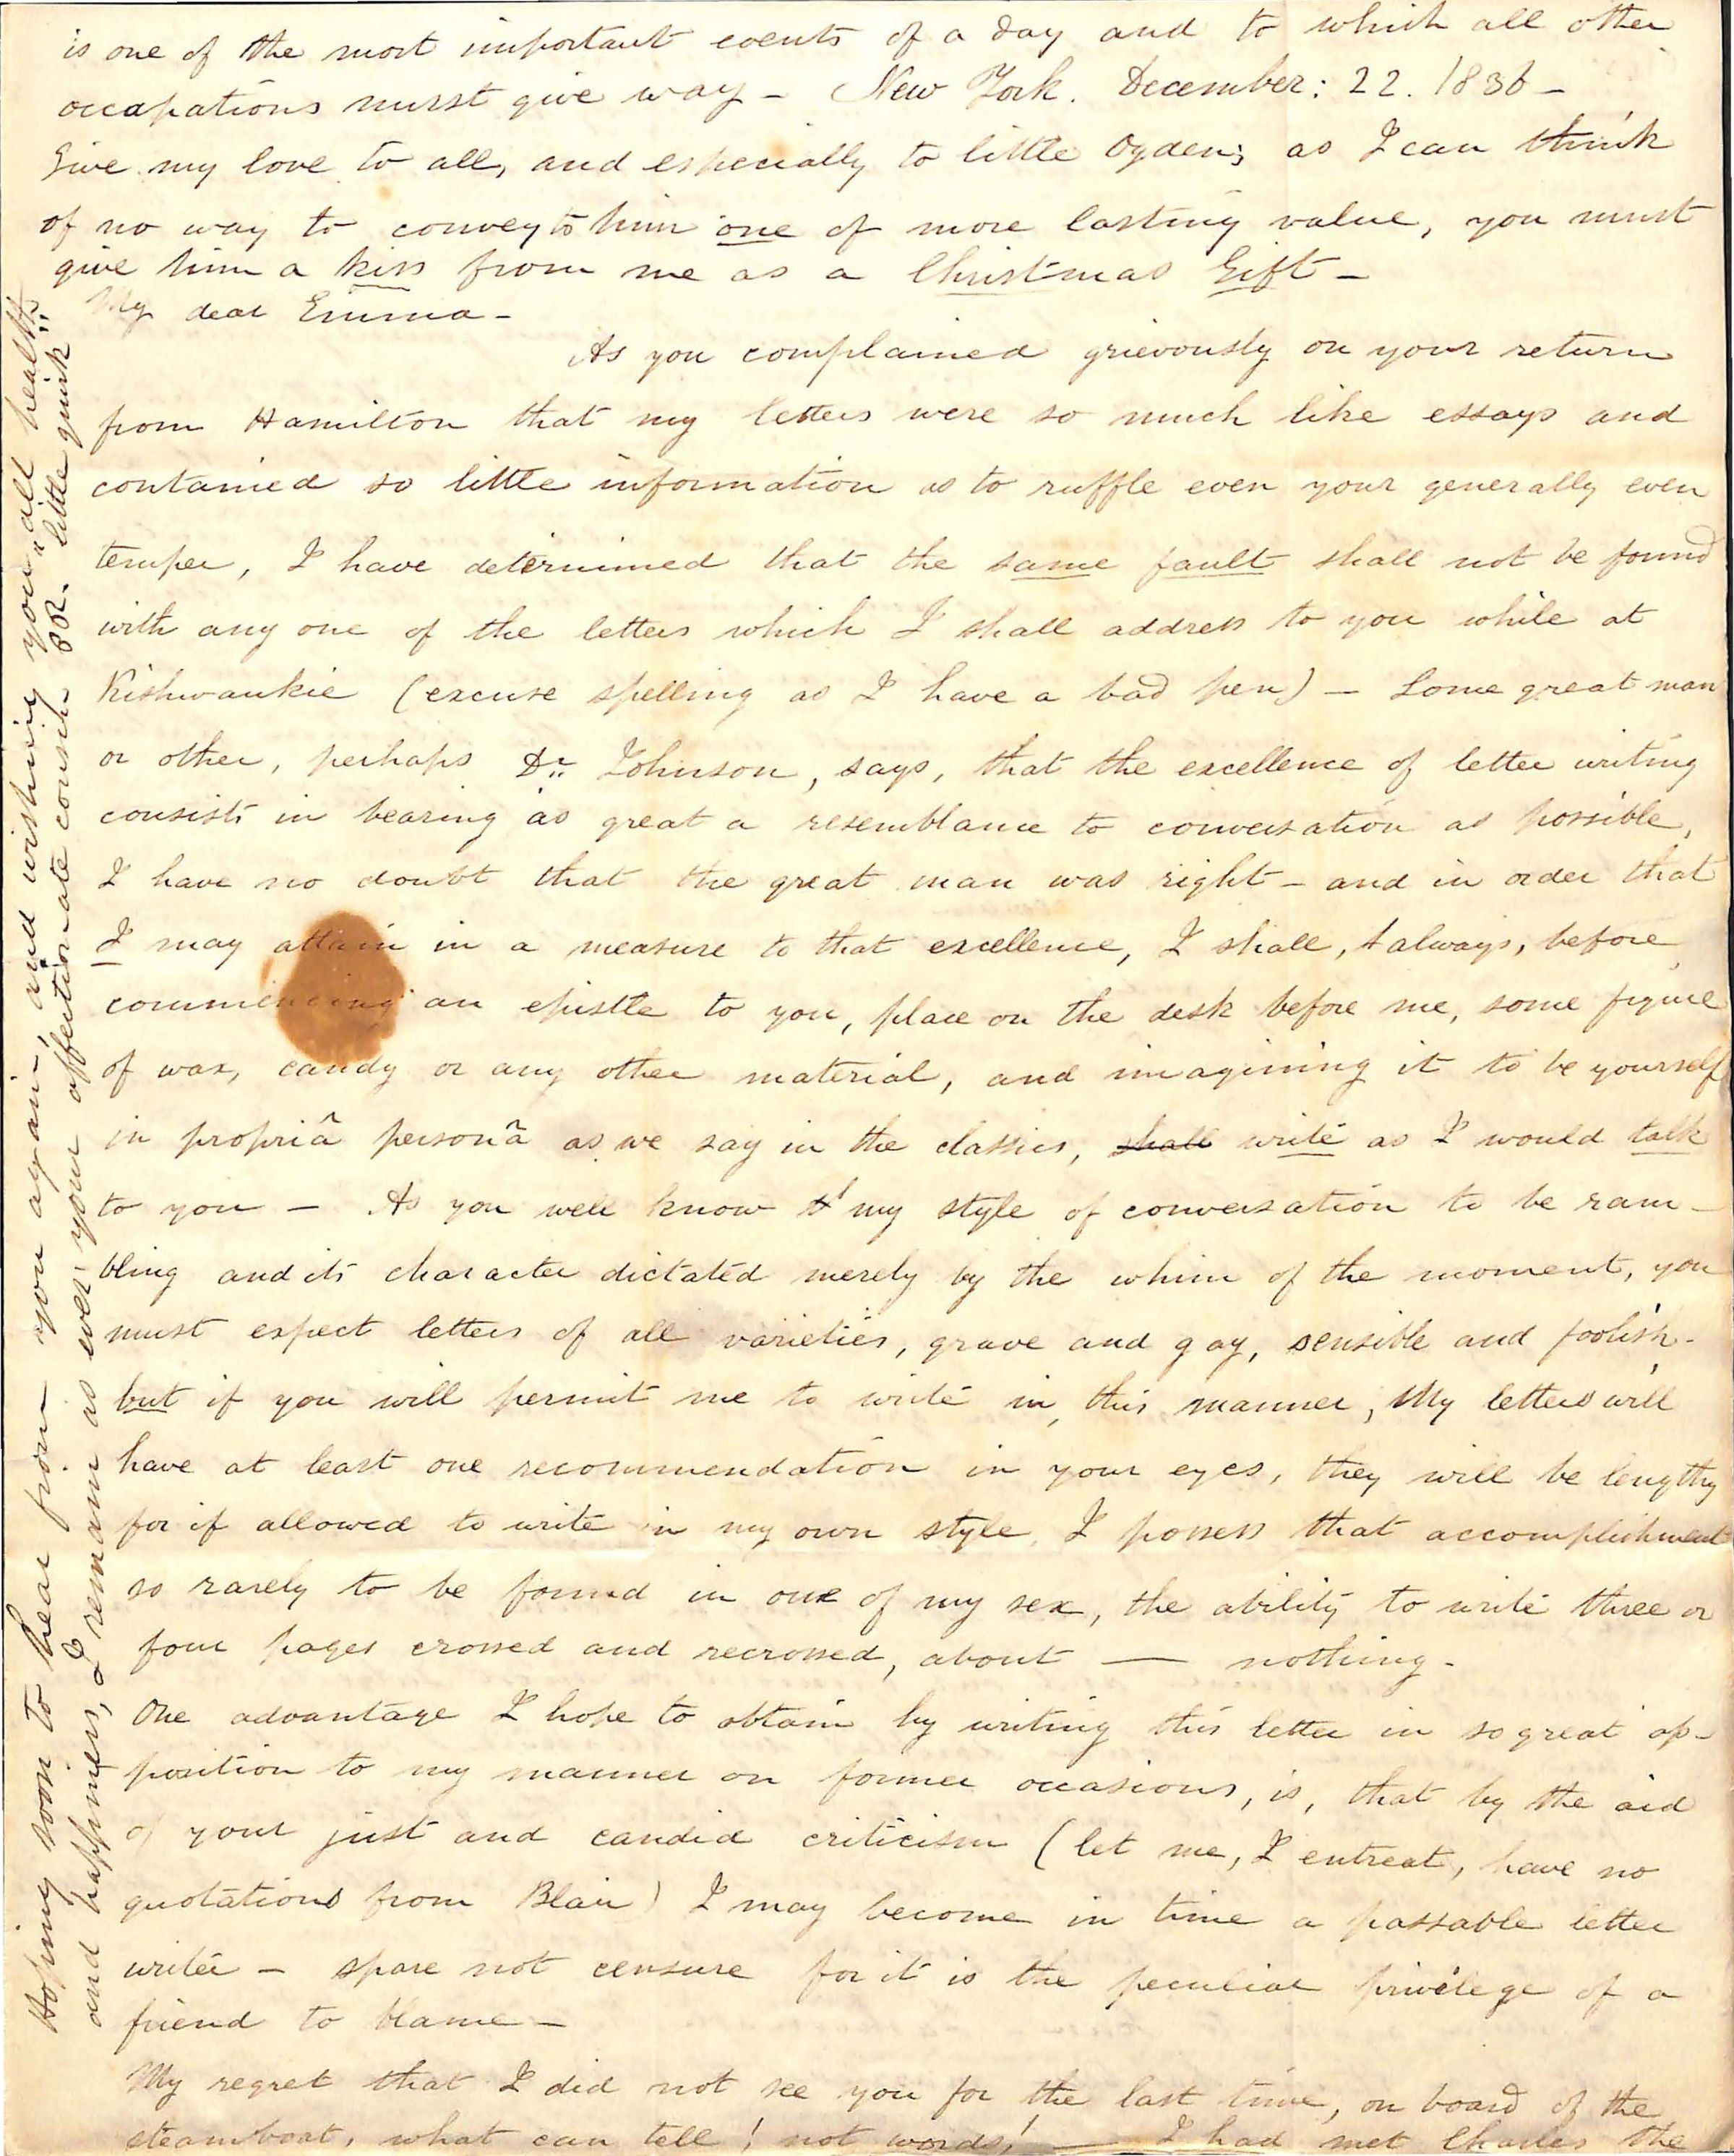 is one of the most important events of a day and to which all other
occupations must give way – New York. December: 22. 1836 –
Give my love to all, and especially to little Ogden; as I can think
of no way to convey to him one of more lasting value, you must
give him a kiss from me as a Christmas Gift –
My dear Emma –
As you complained grievously on your return
from Hamilton that my letters were so much like essays and
contained so little information as to ruffle even your generally even
temper, I have determined that the same fault shall not be found
with any one of the letters which I shall address to you while at
Kishwaukie (excuse spelling as I have a bad pen) – Some great man
or other, perhaps Dr. Johnson, says, that the excellence of letter writing
consists in bearing as great a resemblance to conversation as possible,
I have no doubt that the great man was right – and in order that
I may attain in a measure to that excellence, I shall, always, before
commencing an epistle to you, place on the desk before me, some figure
of wax, candy or any other material, and imagining it to be yourself
in propriâ personâ as we say in the classics, shall write as I would talk
to you – As you well know my style of conversation to be ram–
bling and its character dictated merely by the whim of the moment, you
must expect letters of all varieties, grave and gay, sensible and foolish –
but if you will permit me to write in this manner, My letters will
have at least one recommendation in your eyes, they will be lengthy
for if allowed to write in my own style, I possess that accomplishment
so rarely to be found in one of my sex, the ability to write three or
four pages crossed and recrossed, about — nothing –
One advantage I hope to obtain by writing this letter in so great op–
position to my manner on former occasions, is, that by the aid
of your just and candid criticism (let me, I entreat, have no
quotations from Blair) I may become in time a passable letter
writer – spare not censure for it is the peculiar privilege of a
friend to blame –
My regret that I did not see you for the last time, on board of the
steamboat, what can tell! not words! — I had met Charles the
Hoping soon to hear from you again, and wishing you all health
and happiness, I remain as ever your affectionate cousin little quirk